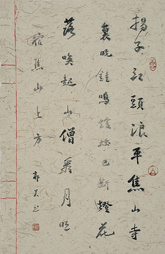 揚子江頭浪平焦山寺
裏晚鐘鳴爐烟已斷燈花
落喚起山僧看月明
宿焦山上方